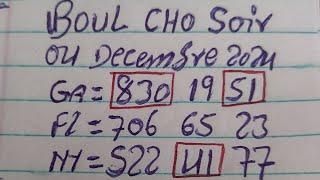 BOUL CHO SOIR
04 Decembre 2024
GA = 830 19 51
FL = 706 65 23
NY = 522 41 77